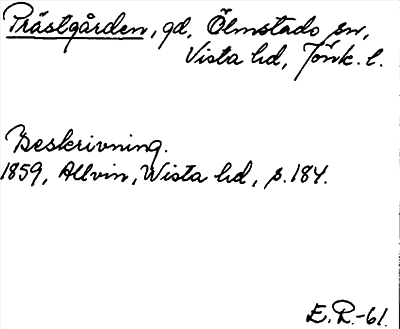 Prästgården, gd, Ölmstads sn,
Vista hd, Jönk. l.
Beskrivning.
1859, Allvin, Wista hd, s. 184.
E. R.-61.